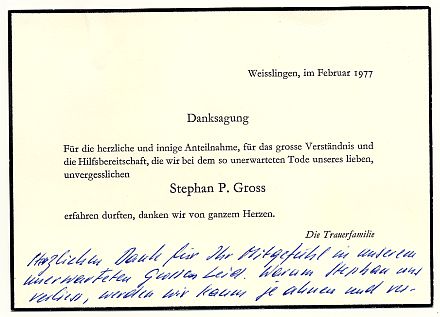 Weisslingen, im Februar 1977
Danksagung
Für die herzliche und innige Anteilnahme, für das grosse Verständnis und
die Hilfsbereitschaft, die wir bei dem so unerwarteten Tode unseres lieben,
unvergesslichen
Stephan P. Gross
erfahren durften, danken wir von ganzem Herzen.
Die Trauerfamilie
Herzlichen Dank für Ihr Mitgefühl in unserem
unerwarteten grossen Leid. Warum Stephan uns
verliess, werden wir kaum je ahnen und ver-